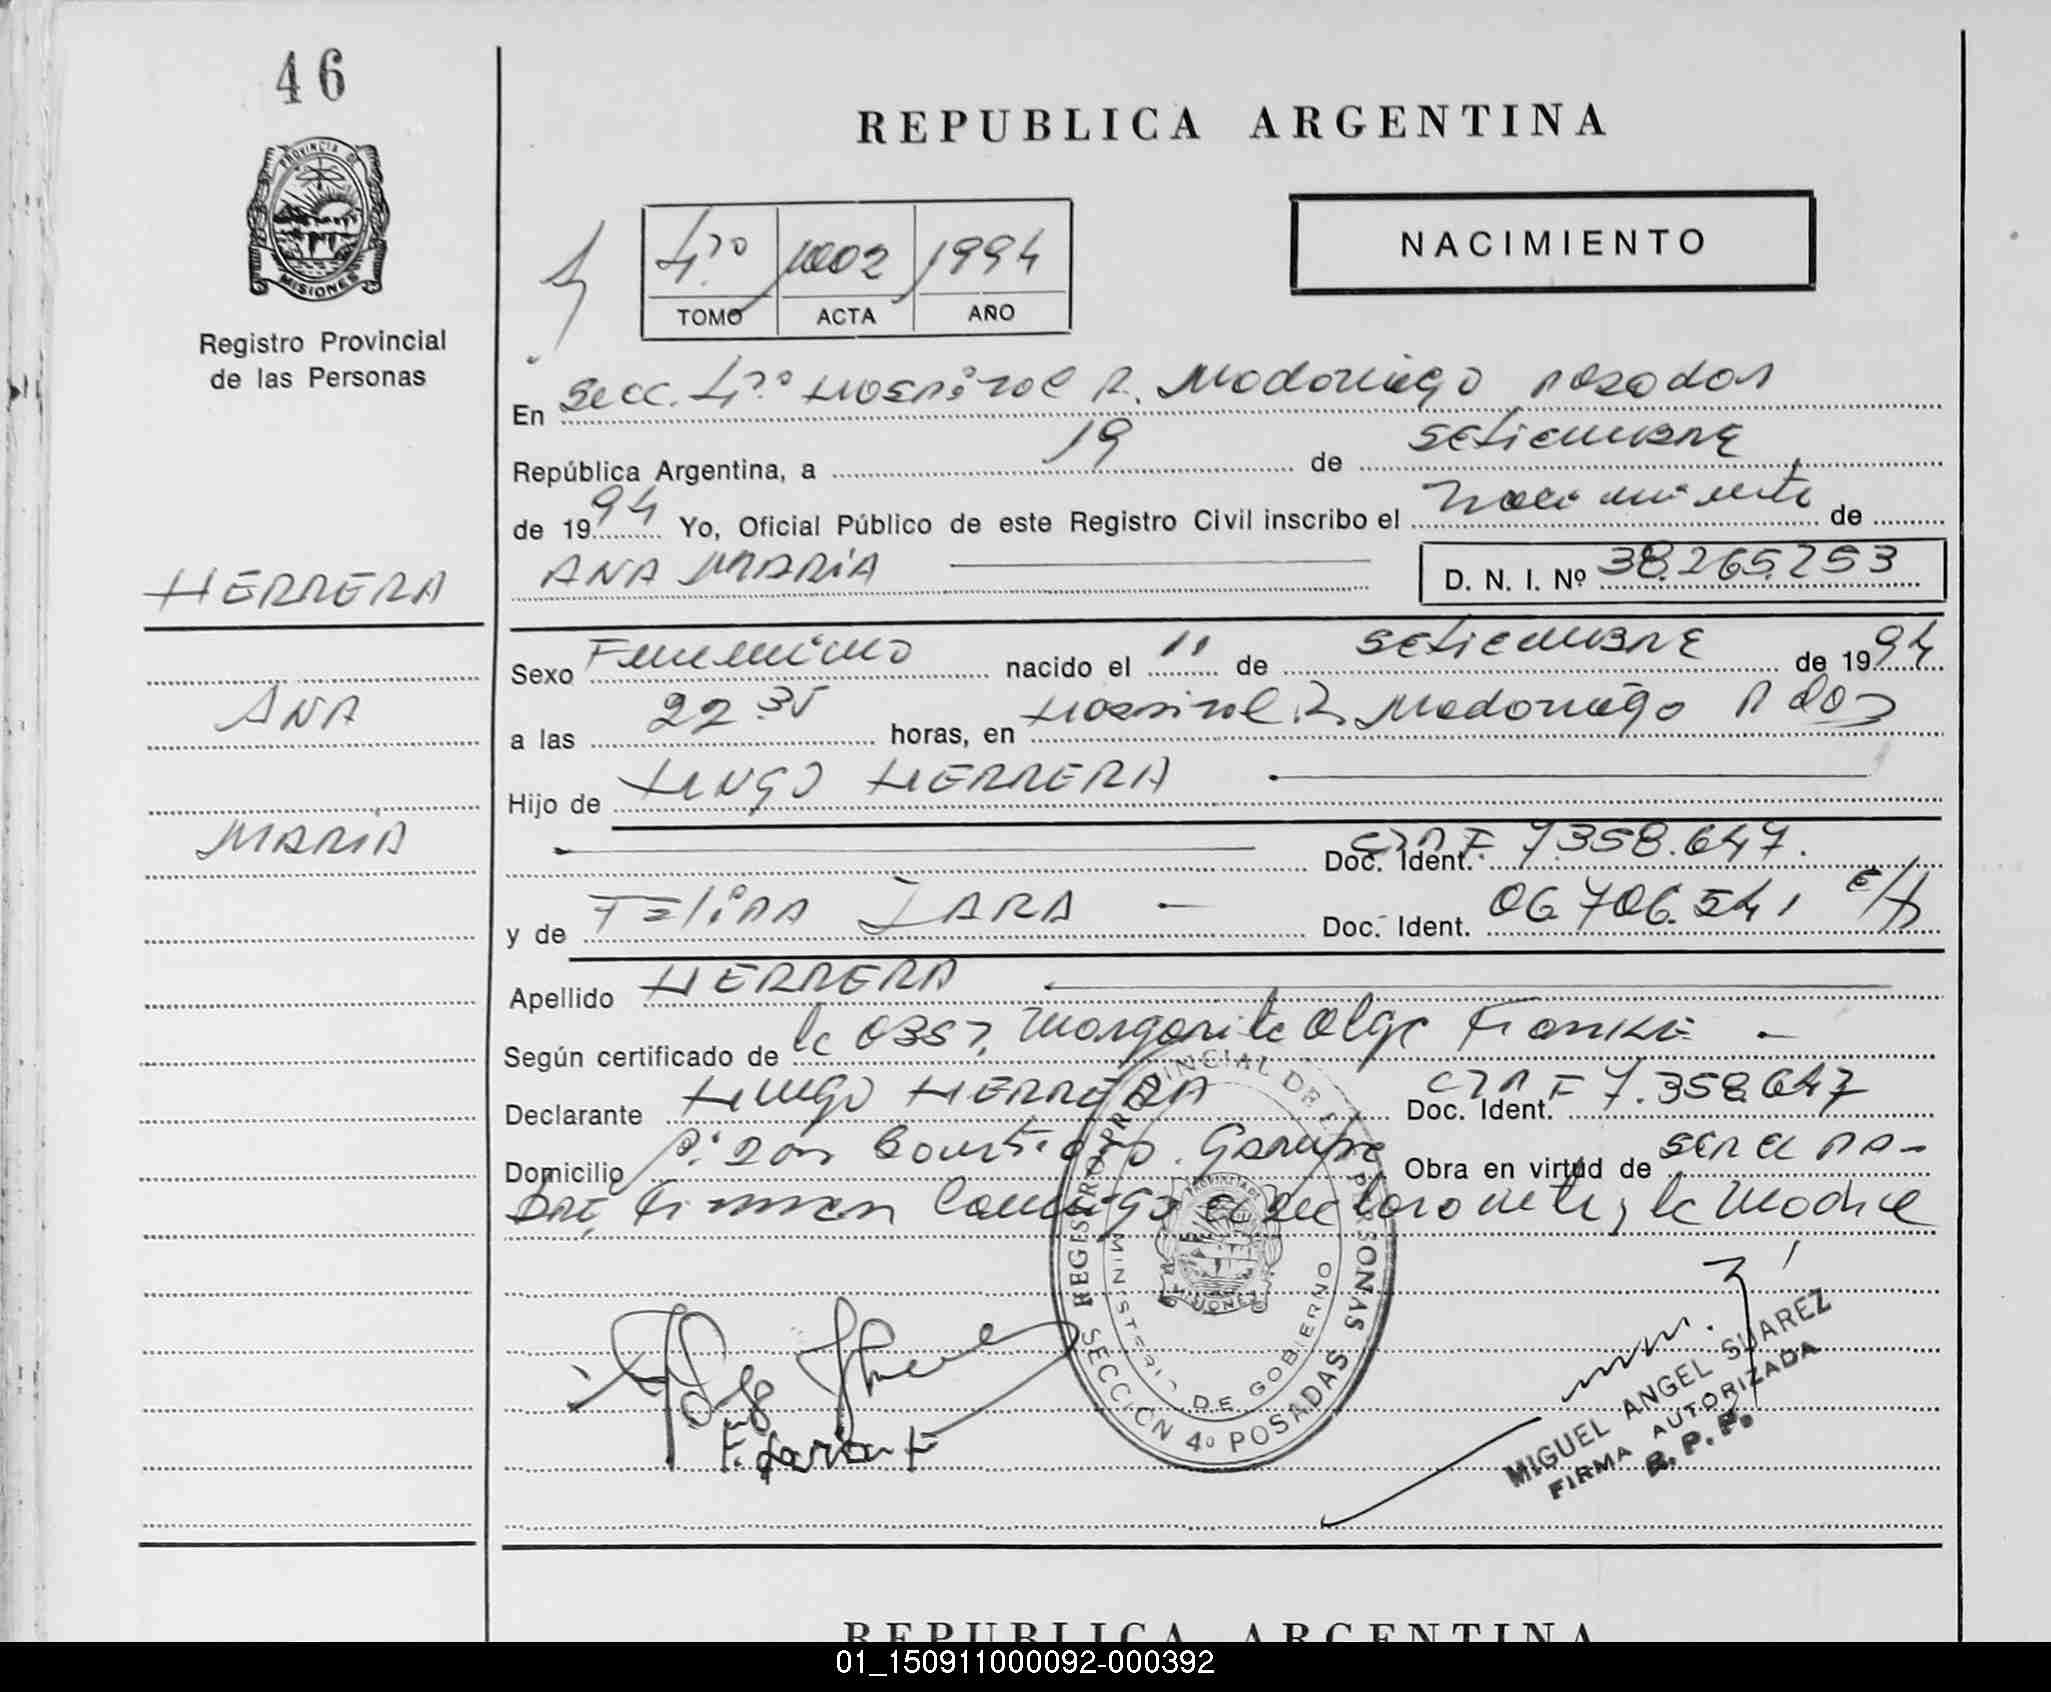 46
PROVINCIA DE
MISIONES
Registro Provincial
de las Personas
REPUBLICA ARGENTINA
4to 1002 1994
TOMO ACTA AÑO
NACIMIENTO
En Secc. 4to Hospital R. Madariaga Posadas
República Argentina, a 19 de setiembre
de 1994 Yo, Oficial Público de este Registro Civil inscribo el nacimiento de
HERRERA
ANA MARIA D. N. I. Nº 38.265.253
Sexo Femenino nacido el 11 de setiembre de 1994
ANA
a las 22 35 horas, en Hospital R. Madariaga Pdas
Hijo de HUGO HERRERA
MARIA
Doc. Ident. 7.358.647.
y de Felipa JARA Doc. Ident. 06.706.541
Apellido HERRERA
Según certificado de la Obst. Margarita Olga Franke
Declarante HUGO HERRERA Doc. Ident. 7.358.647
Domicilio Garupa Obra en virtud de ser el pa-
dre, firman conmigo el declarante y la madre
REGISTRO PROVINCIAL DE PERSONAS
MINISTERIO DE GOBIERNO
PROVINCIA DE
MISIONES
SECCION 4º POSADAS
MIGUEL ANGEL SUAREZ
FIRMA AUTORIZADA
R. P. P.
REPUBLICA ARGENTINA
01_150911000092-000392